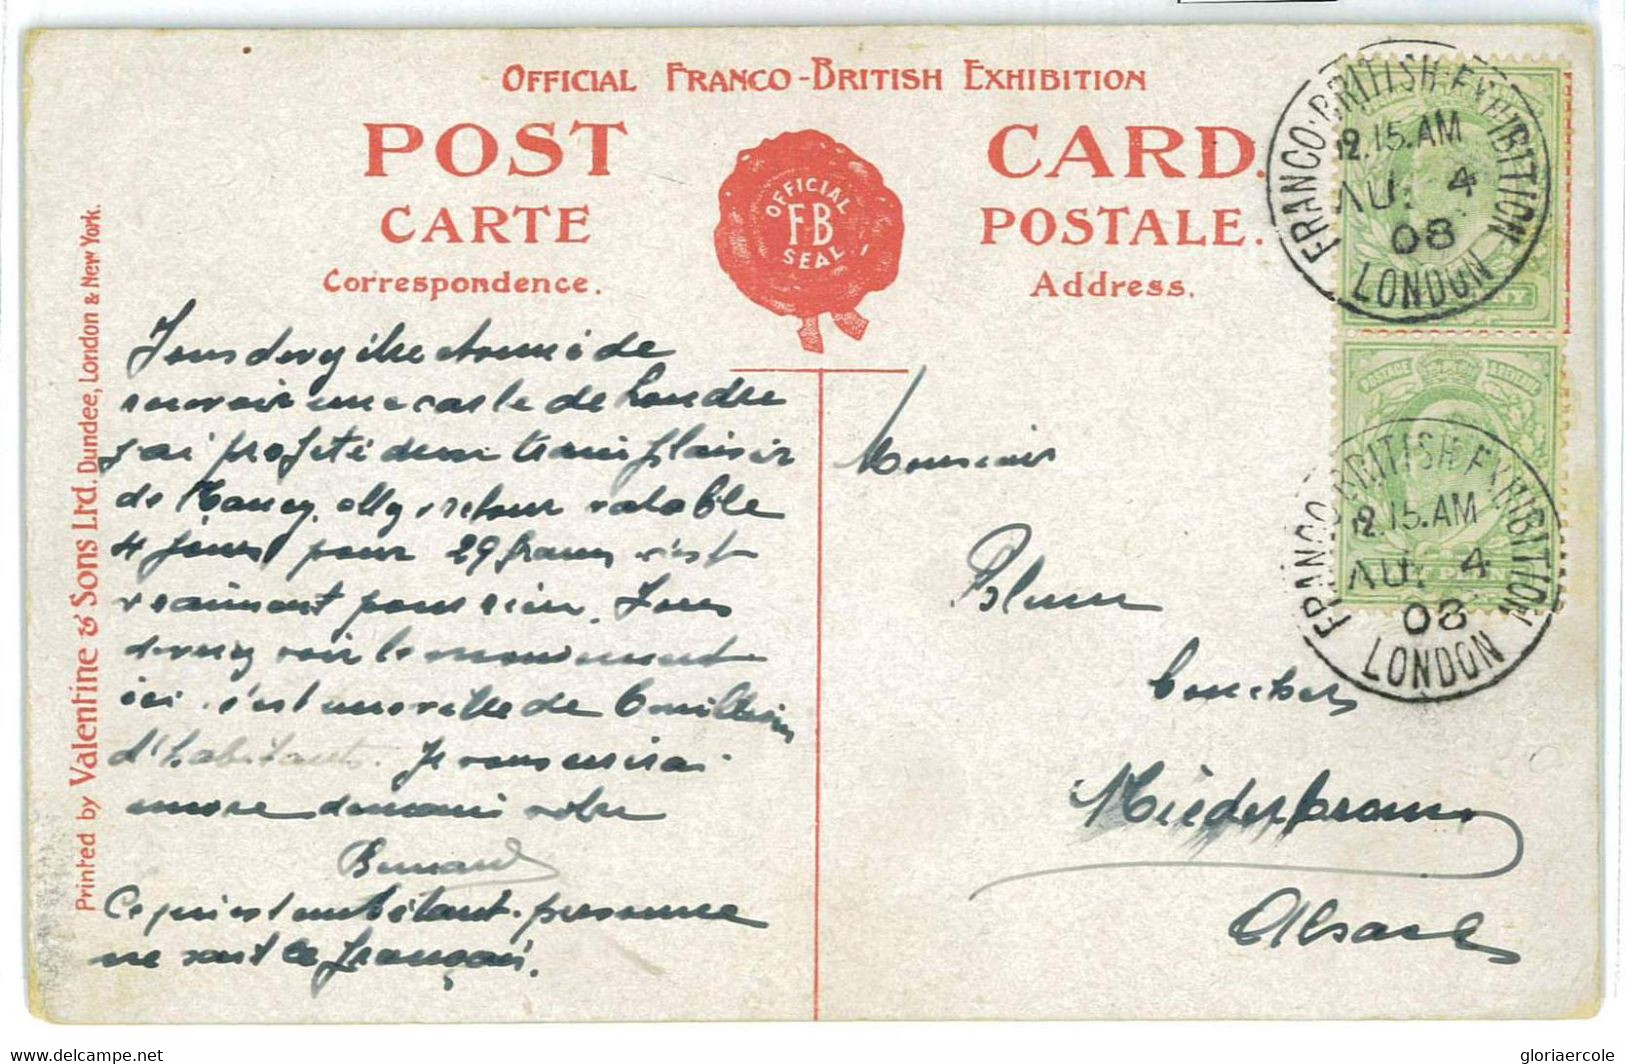 OFFICIAL FRANCO-BRITISH EXHIBITION
POST CARD.
CARTE POSTALE.
Correspondence. Address.
OFFICIAL
FB
SEAL
Printed by Valentine & Sons Ltd. Dundee, London & New York.
FRANCO-BRITISH EXHIBITION
12.15.AM
AU: 4
08
LONDON
POSTAGE REVENUE
FRANCO-BRITISH EXHIBITION
12.15.AM
AU: 4
08
LONDON
Vous devez être étonné de
recevoir une carte de Londre
j'ai profité d'un train plaisir
de Nancy, all. retour valable
4 jours pour 29 francs c'est
vraiment pour rien. Vous
devrez voir le mouvement
ici, c'est une ville de 6 millions
d'habitants. Je vous
encore votre
Bernard
Ce qui est embêtant. personne
ne sait le français.
Monsieur
Blum
Niederbronn
Alsace
delcampe.net
gloriaercole